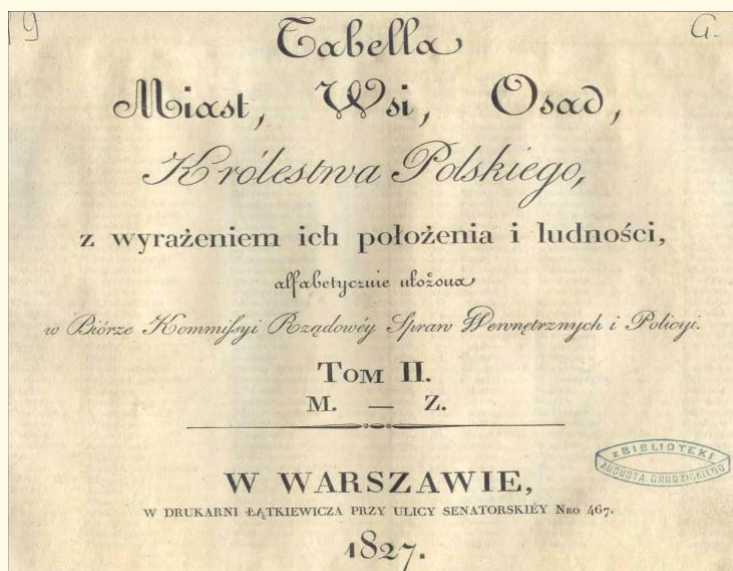 19 G.
Tabella
Miast, Wsi, Osad,
Królestwa Polskiego,
z wyrażeniem ich położenia i ludności,
alfabetycznie ułożona
w Biórze Kommissyi Rządowéy Spraw Wewnętrznych i Policyi.
Tom II.
M. — Z.
z BIBLIOTEKI
AUGUSTA GRODZICKIEGO
W WARSZAWIE,
W DRUKARNI ŁĄTKIEWICZA PRZY ULICY SENATORSKIÉY Nro 467.
1827.